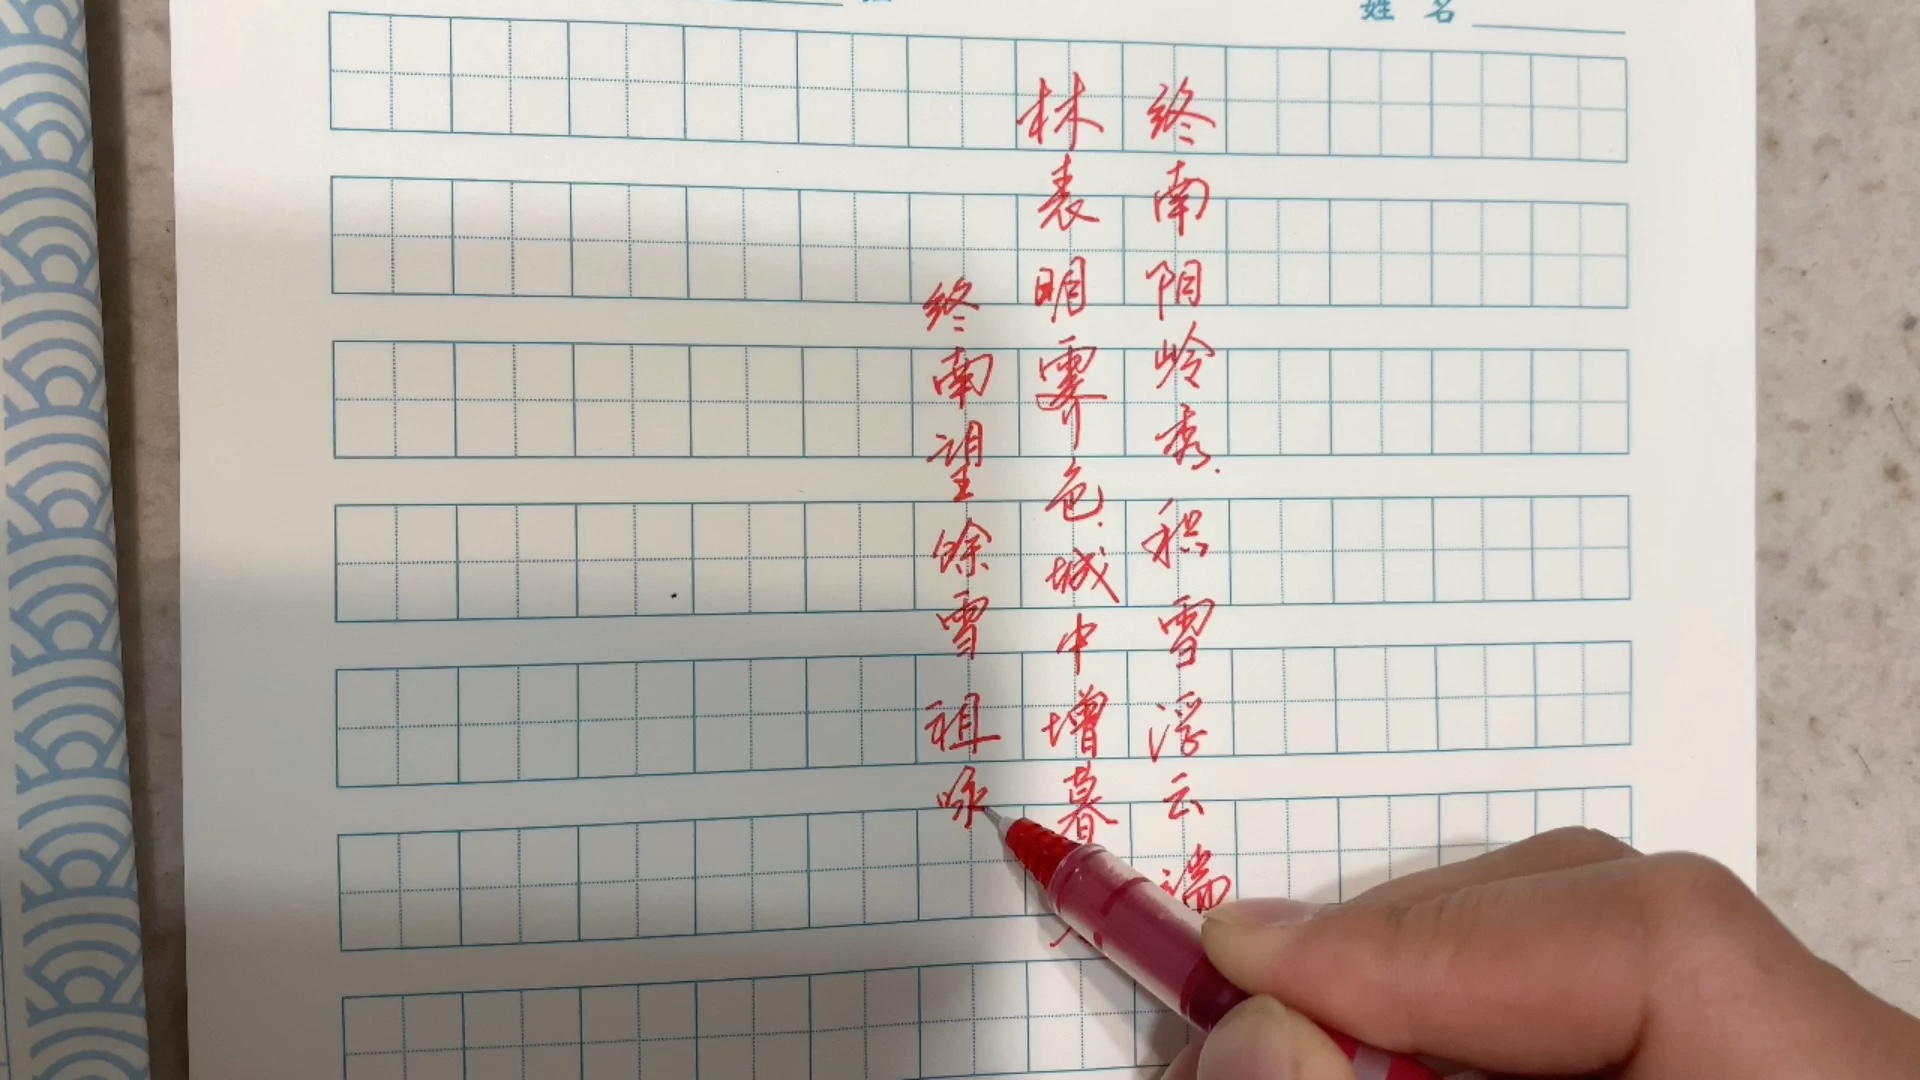 姓 名
终南阴岭秀.积雪浮云端
林表明霁色.城中增暮
终南望馀雪 祖咏